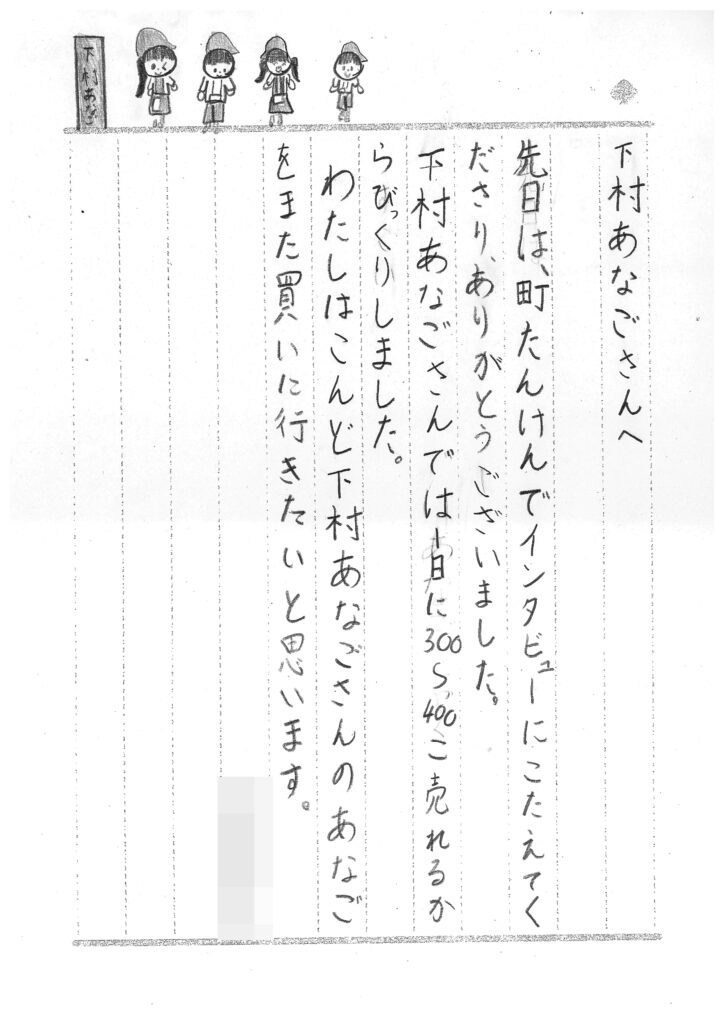 下村あなごさんへ
先日は、町たんけんでインタビューにこたえてく
ださり、ありがとうございました。
下村あなごさんでは一日に300〜400こ売れるか
らびっくりしました。
わたしはこんど下村あなごさんのあなご
をまた買いに行きたいと思います。
下村あな